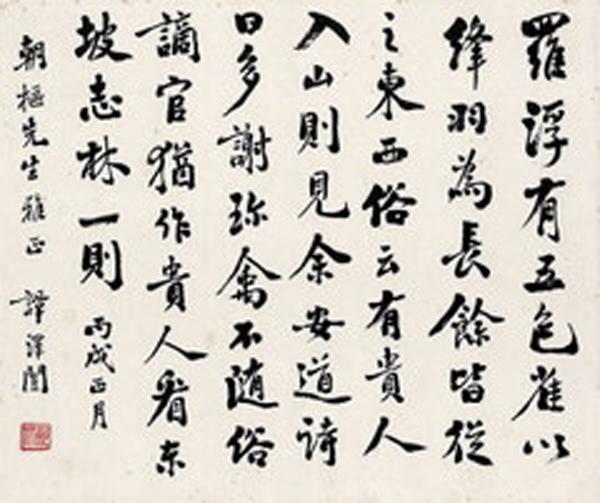 羅浮有五色雀以
絳羽為長餘皆從
之東西俗云有貴人
入山則見余安道詩
曰多謝珍禽不隨俗
謫官猶作貴人看東
坡志林一則 丙戌正月
朝樞先生雅正 譚澤闓